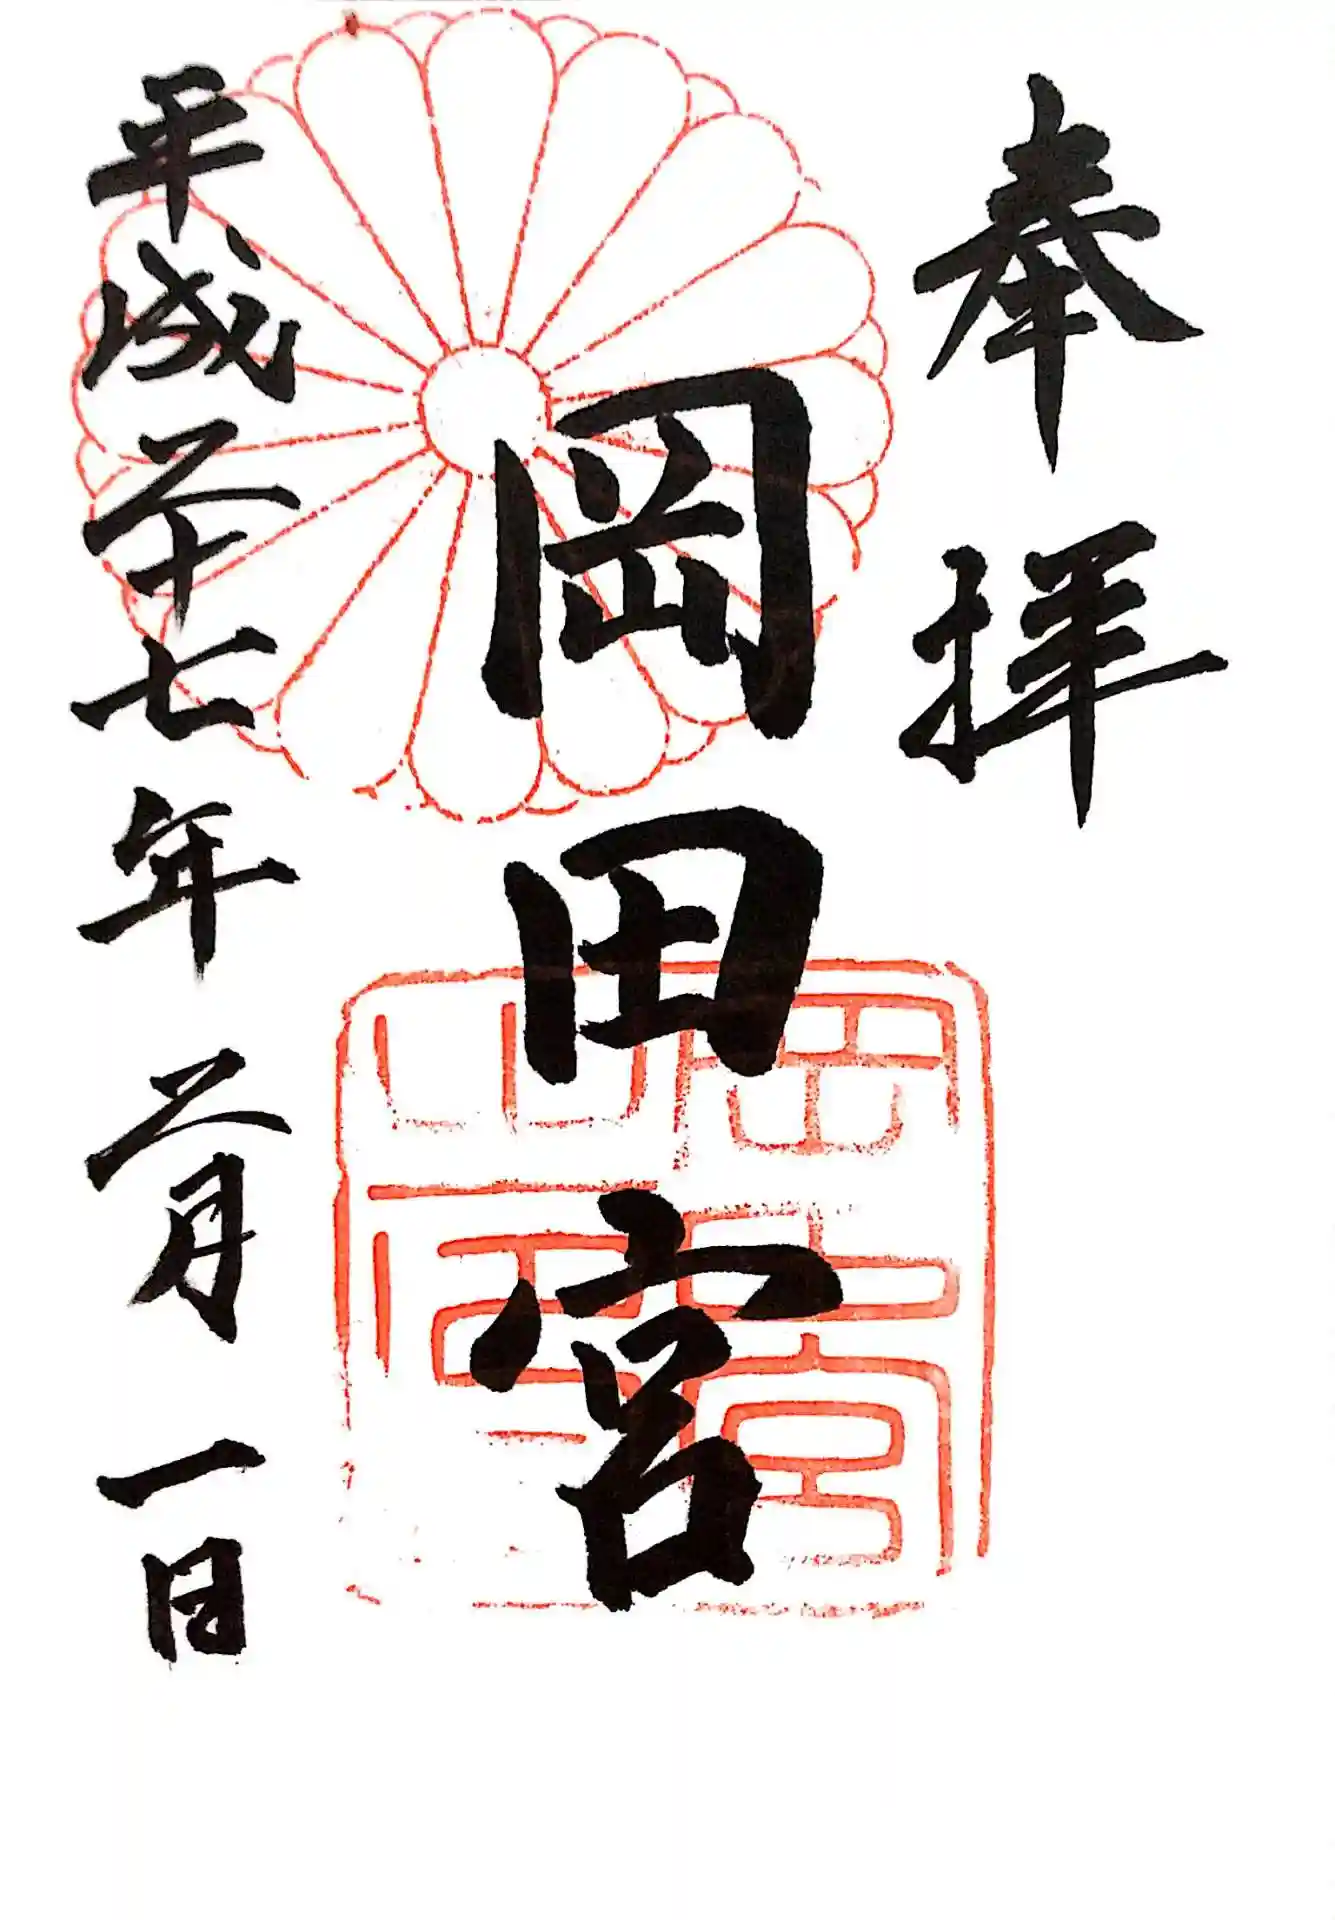 奉拝
岡田宮
平成二十七年二月一日